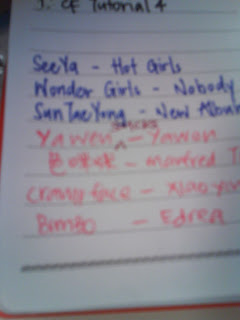 J. CF Tutorial 4
SeeYa - Hot Girls
Wonder Girls - Nobody
Sun Tae Yong - New Album
Yawen sucks - Yawen
- manfred T
crang face - Xiao yan
Bimbo - Edrea